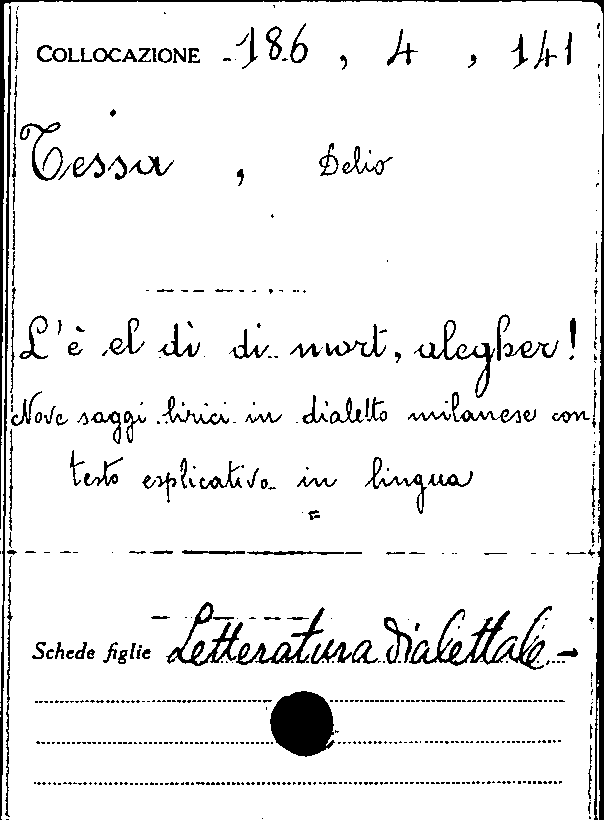 COLLOCAZIONE 186 , 4 , 141
Tessa , Delio
L'è el dì di mort, alegher!
Nove saggi lirici in dialetto milanese con
testo esplicativo in lingua
Schede figlie Letteratura dialettale -